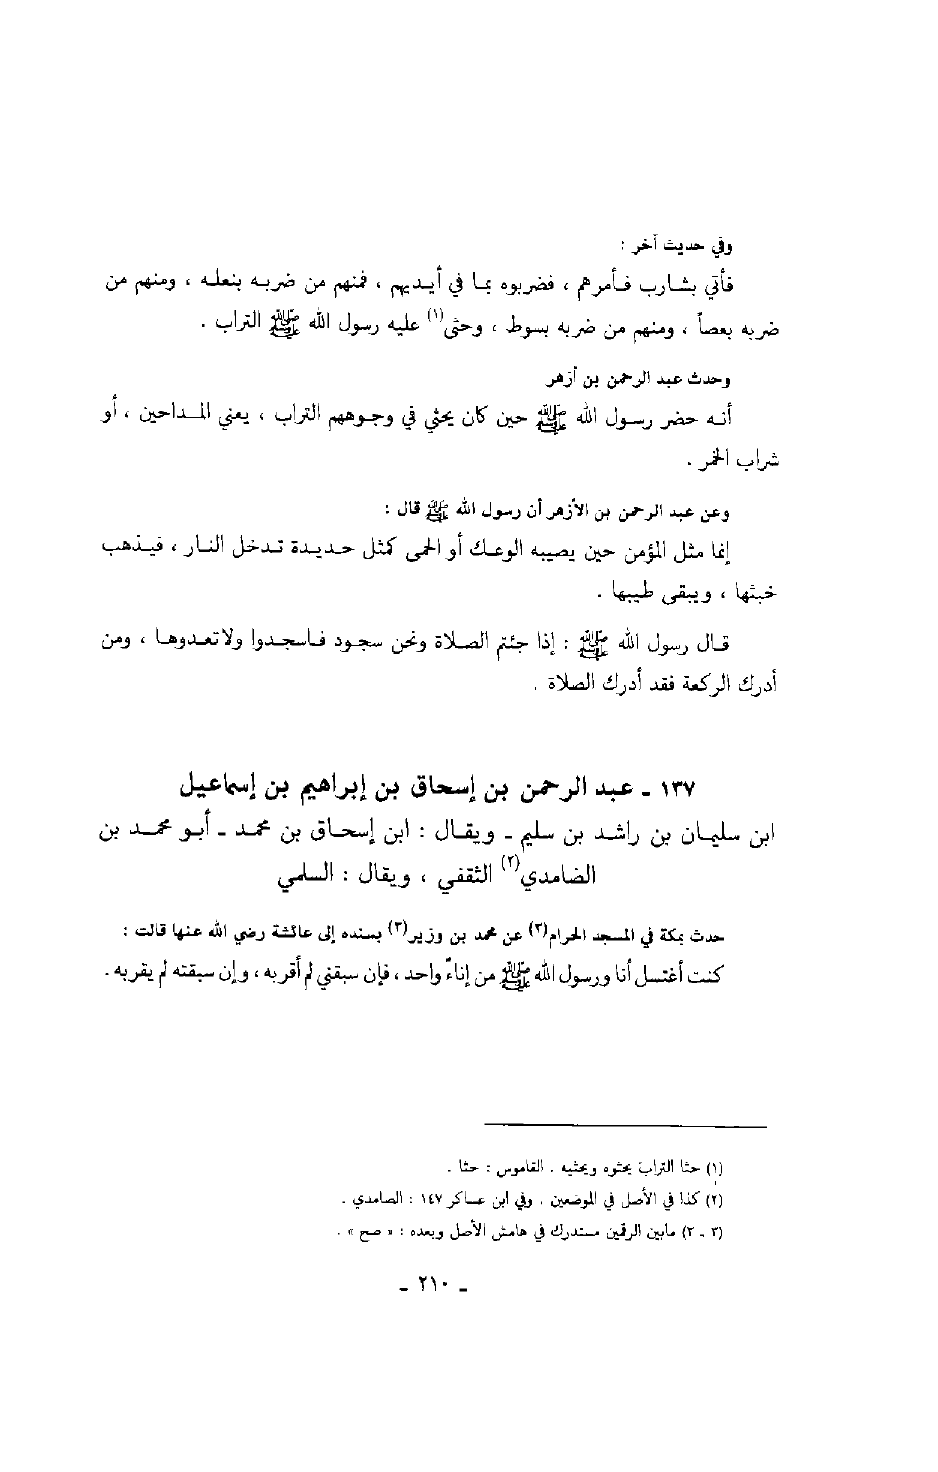 وفي حديث آخر :
فأتي بشارب فأمرهم ، فضربوه بما في أيديهم ، فمنهم من ضربه بنعله ، ومنهم من
ضربه بعصاً ، ومنهم من ضربه بسوط ، وحثى(١) عليه رسول الله ﷺ التراب .
وحدث عبد الرحمن بن أزهر
أنه حضر رسول الله ﷺ حين كان يحثي في وجوههم التراب ، يعني المداحين ، أو
شراب الخمر .
وعن عبد الرحمن بن الأزهر أن رسول الله ﷺ قال :
إنما مثل المؤمن حين يصيبه الوعك أو الحمى كمثل حديدة تدخل النار ، فيذهب
خبثها ، ويبقى طيبها .
قال رسول الله ﷺ : إذا جئتم الصلاة ونحن سجود فاسجدوا ولاتعدوها ، ومن
أدرك الركعة فقد أدرك الصلاة .
١٣٧ ـ عبد الرحمن بن إسحاق بن إبراهيم بن إسماعيل
ابن سليمان بن راشد بن سليم ـ ويقال : ابن إسحاق بن محمد ـ أبو محمد بن
الضامدي(٢) الثقفي ، ويقال : السلمي
حدث بمكة في المسجد الحرام(٣) عن محمد بن وزير(٣) بسنده إلى عائشة رضي الله عنها قالت :
كنت أغتسل أنا ورسول الله ﷺ من إناءٍ واحد ، فإن سبقني لم أقربه ، وإن سبقته لم يقربه .
(١) حثا التراب يحثوه ويحثيه . القاموس : حثا .
(٢) كذا في الأصل في الموضعين . وفي ابن عساكر ١٤٧ : الصامدي .
(٣ ـ ٣) مابين الرقمين مستدرك في هامش الأصل وبعده : « صح » .
ـ ٢١٠ ـ